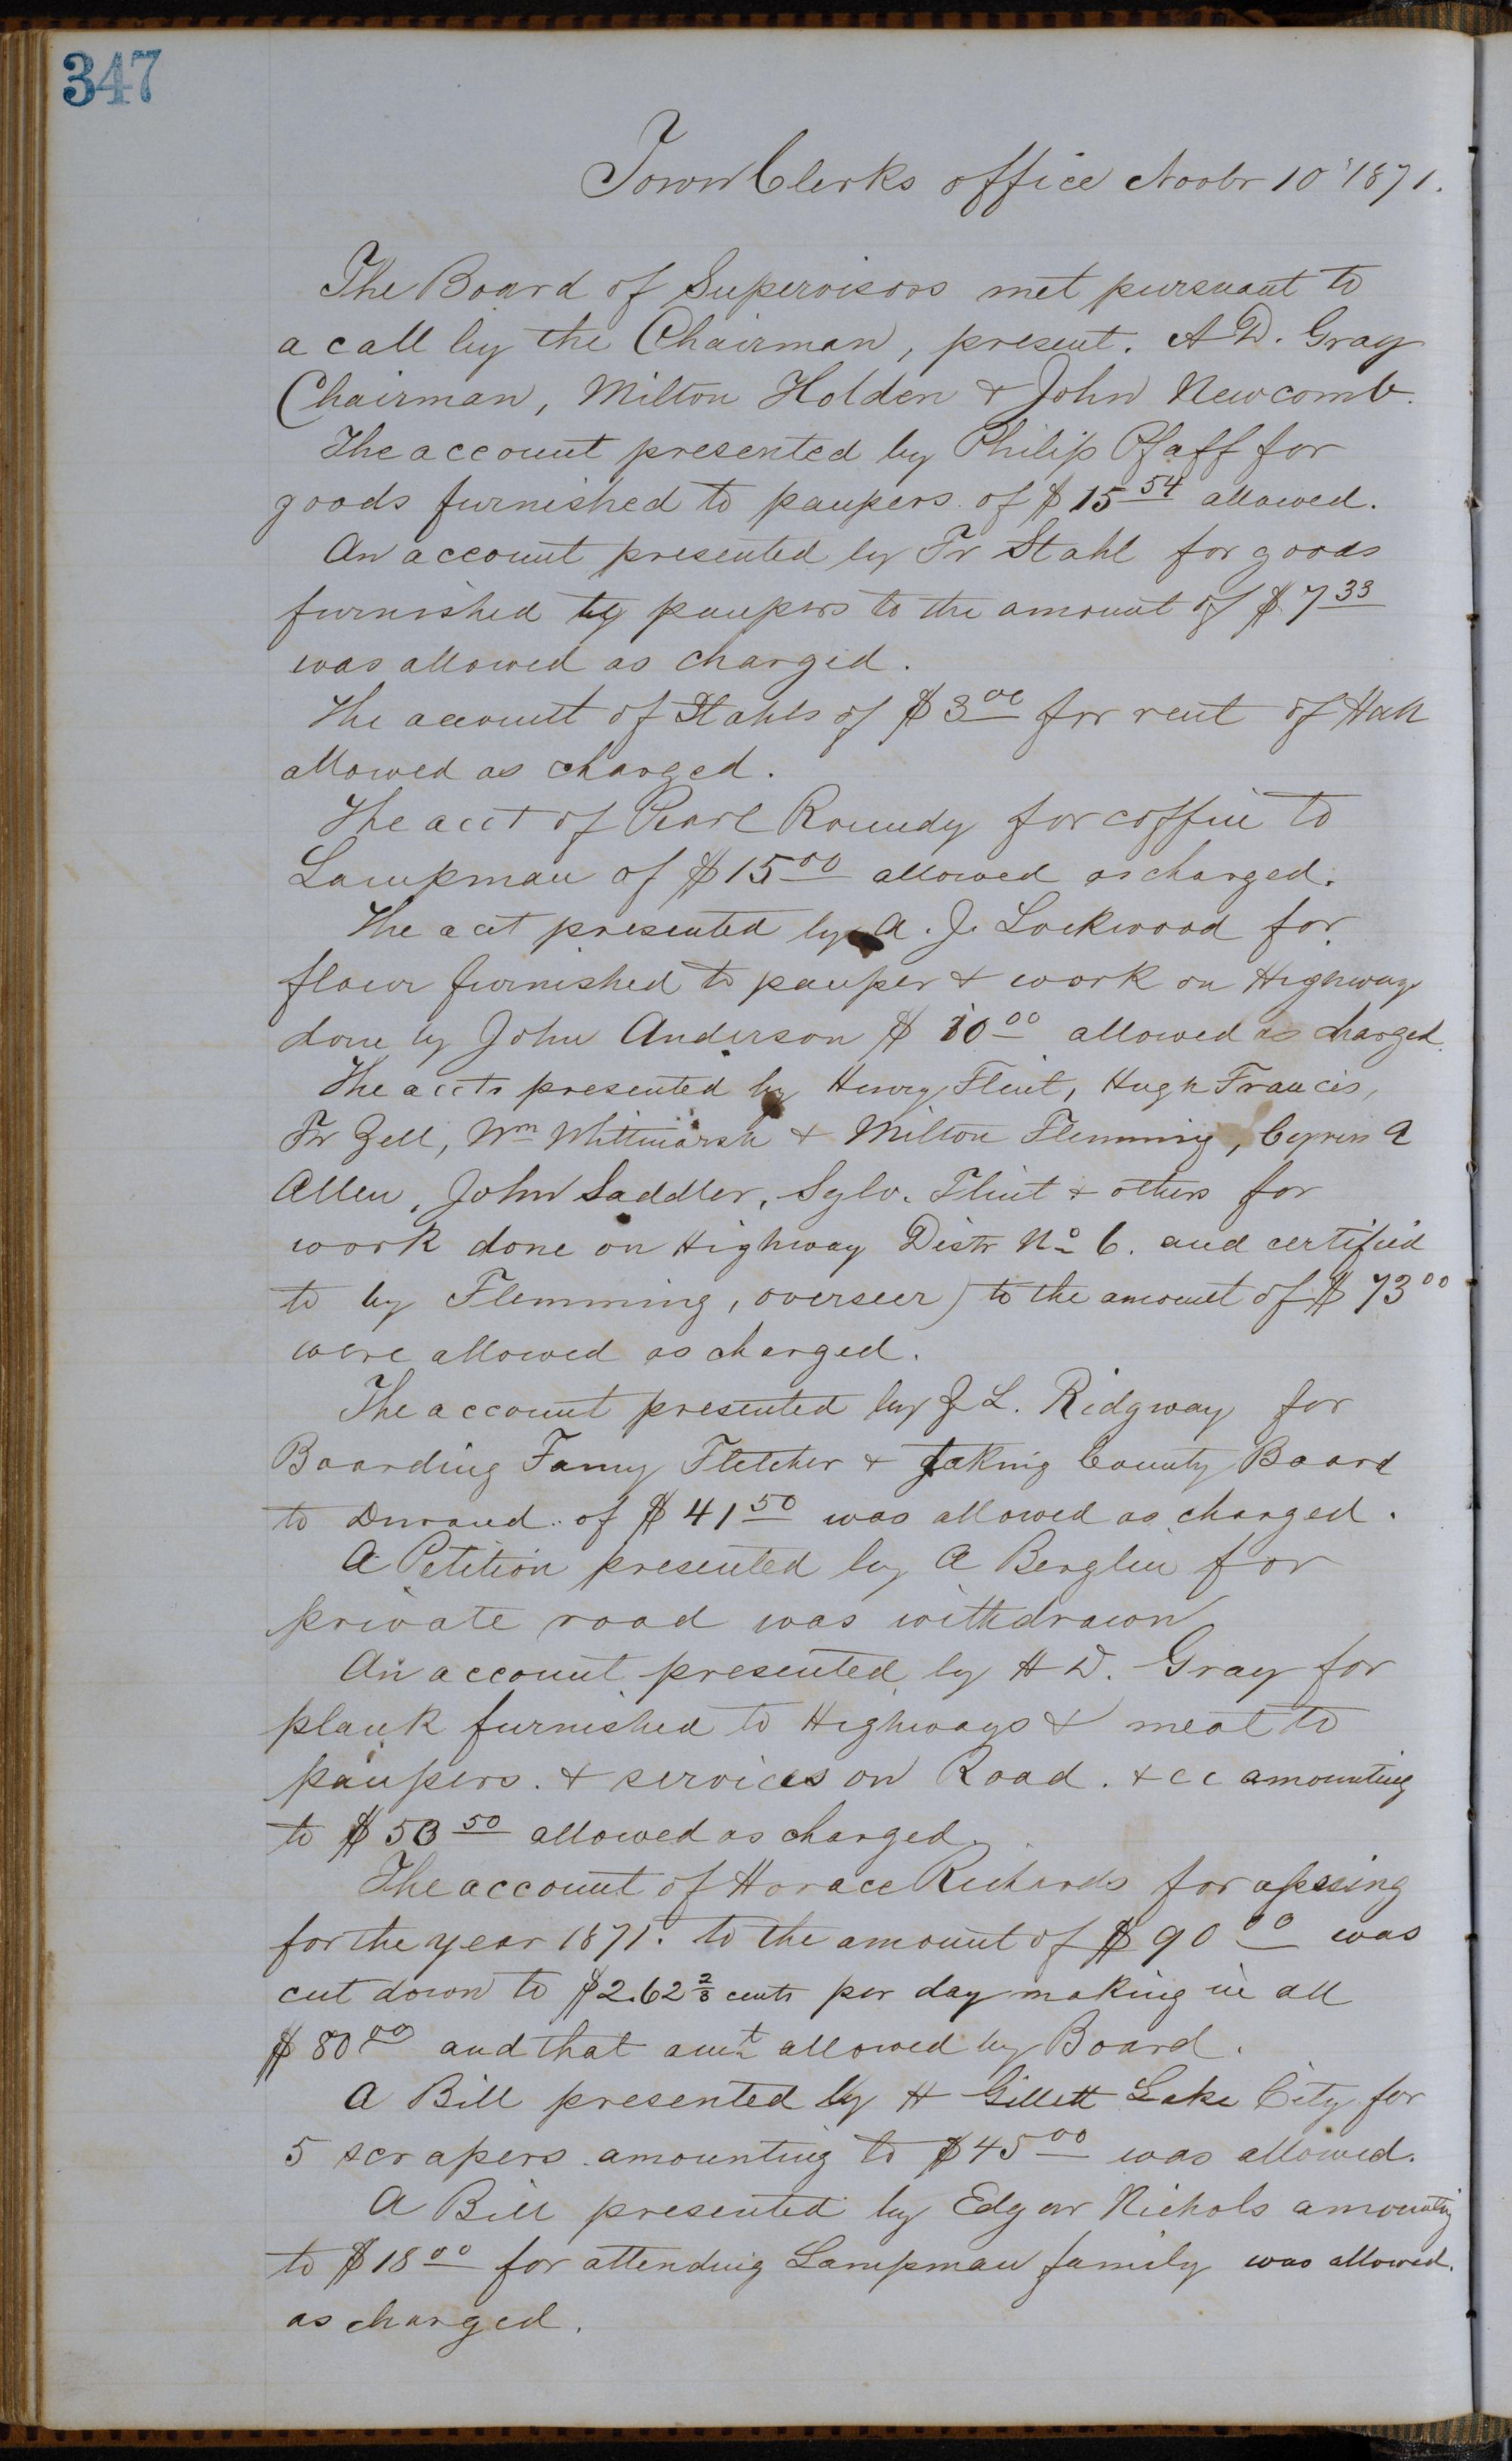 347
Town Clerks office Novbr 10' 1871.
The Board of Supervisors met pursuant to
a call by the Chairman, present. A D. Gray
Chairman, Milton Holden & John Newcomb.
The account presented by Philip Pfaff for
goods furnished to paupers of $15 54 allowed.
An account presented by Fr Stahl for goods
furnished to paupers to the amount of $7 33
was allowed as charged.
The account of Stahls of $3 00 for rent of Hall
allowed as charged.
The acct of Pearl Roundy for coffin to
Lampman of $15 00 allowed as charged.
The acct presented by A. J. Lockwood for
flour furnished to pauper & work on Highway
done by John Anderson $ 10 00 allowed as charged.
The accts presented by Henry Flint, Hugh Francis,
Fr Zell, Wm Whitmarsh & Milton Flemming, Cyren A
Allen, John Saddler, Sylv. Flint & others for
work done on Highway Distr No 6. and certified
to by Flemming, overseer) to the amount of $ 73 00
were allowed as charged.
The account presented by J L. Ridgway for
Boarding Fanny Fletcher & taking County Board
to Durand of $ 41 50 was allowed as charged.
A Petition presented by A Berglin for
private road was withdrawn
An account presented by A D. Gray for
plank furnished to Highways & meat to
paupers. & services on Road. & cc amounting
to $ 53 50 allowed as charged.
The account of Horace Richards for assessing
for the year 1871. to the amount of $ 90 00 was
cut down to $2.62 2/3 cents per day making in all
$ 80 00 and that amt allowed by Board.
A Bill presented by H Gillett Lake City for
5 scrapers amounting to $45 00 was allowed.
A Bill presented by Edgar Nichols amounting
to $18 00 for attending Lampman family was allowed.
as charged.